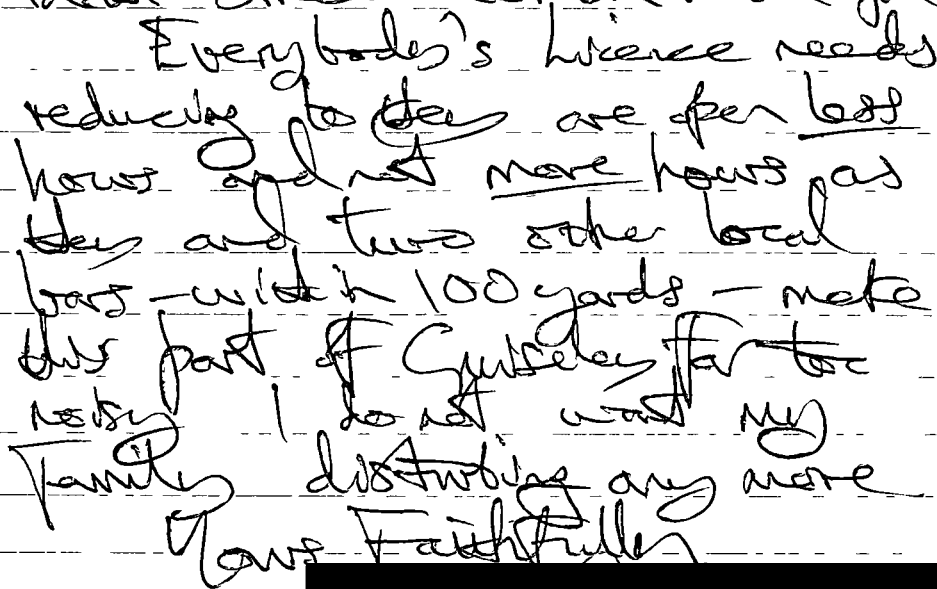 Everybody's Licence needs
reducing to they are open less
hours and not more hours as
they and two other local
bars - within 100 yards - make
this part of Guiseley Far too
noisy I do not want my
Family disturbing any more
Yours Faithfully